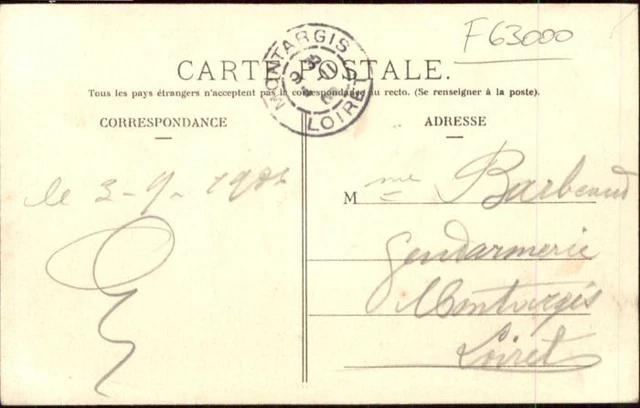 F63000
MONTARGIS
LOIRET
CARTE POSTALE.
Tous les pays étrangers n'acceptent pas la correspondance au recto. (Se renseigner à la poste).
CORRESPONDANCE
ADRESSE
le 3-9-
Mme Barbeaud
Gendarmerie
Montargis
Loiret